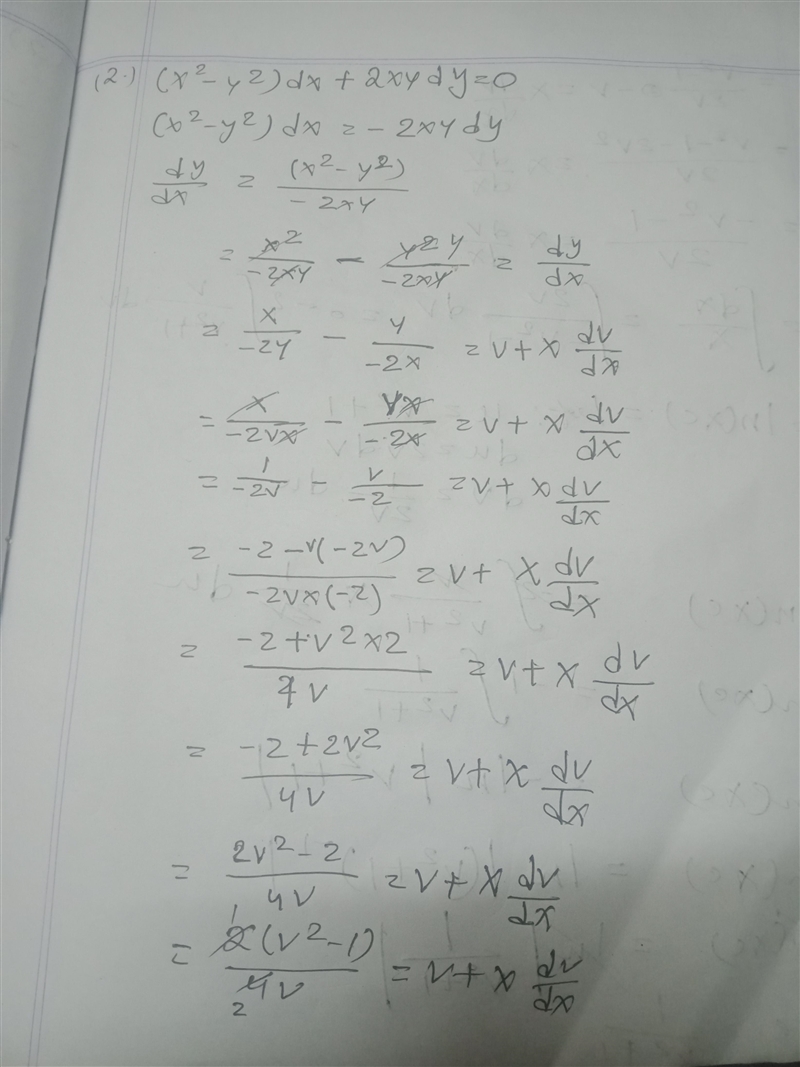 (2.) (x² - y²) dx + 2xy dy = 0
(x² - y²) dx = - 2xy dy
dy/dx = (x² - y²)/-2xy
= x²/-2xy - y² y/-2xy = dy/dx
= x/-2y - y/-2x = v + x dv/dx
= x/-2vx - vx/-2x = v + x dv/dx
= 1/-2v - v/-2 = v + x dv/dx
= -2 - v(-2v)/-2v×(-2) = v + x dv/dx
= -2 + v² × 2/4v = v + x dv/dx
= -2 + 2v²/4v = v + x dv/dx
= 2v² - 2/4v = v + x dv/dx
= 1 2(v² - 1)/2 4v = v + x dv/dx